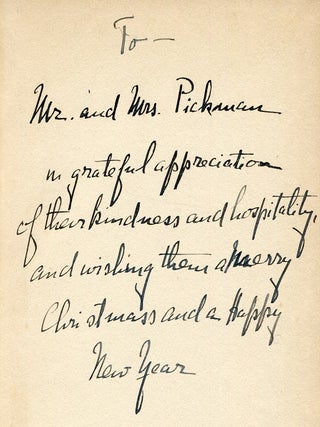 To —
Mr. and Mrs. Pickman
in grateful appreciation
of their kindness and hospitality,
and wishing them a Merry
Christmass and a Happy
New Year